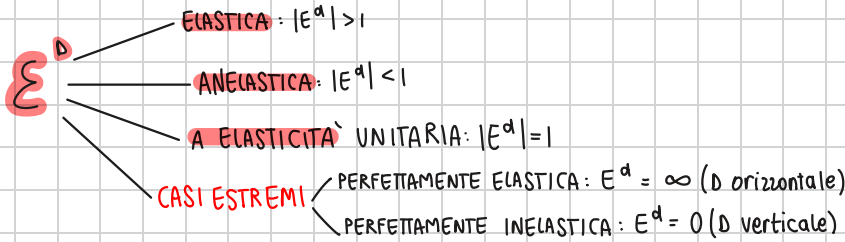 ELASTICA: |Eᵈ|>1
ℰᴰ
ANELASTICA: |Eᵈ|<1
A ELASTICITÀ UNITARIA: |Eᵈ|=1
CASI ESTREMI
PERFETTAMENTE ELASTICA: Eᵈ = ∞ (D orizzontale)
PERFETTAMENTE INELASTICA: Eᵈ= 0 (D verticale)